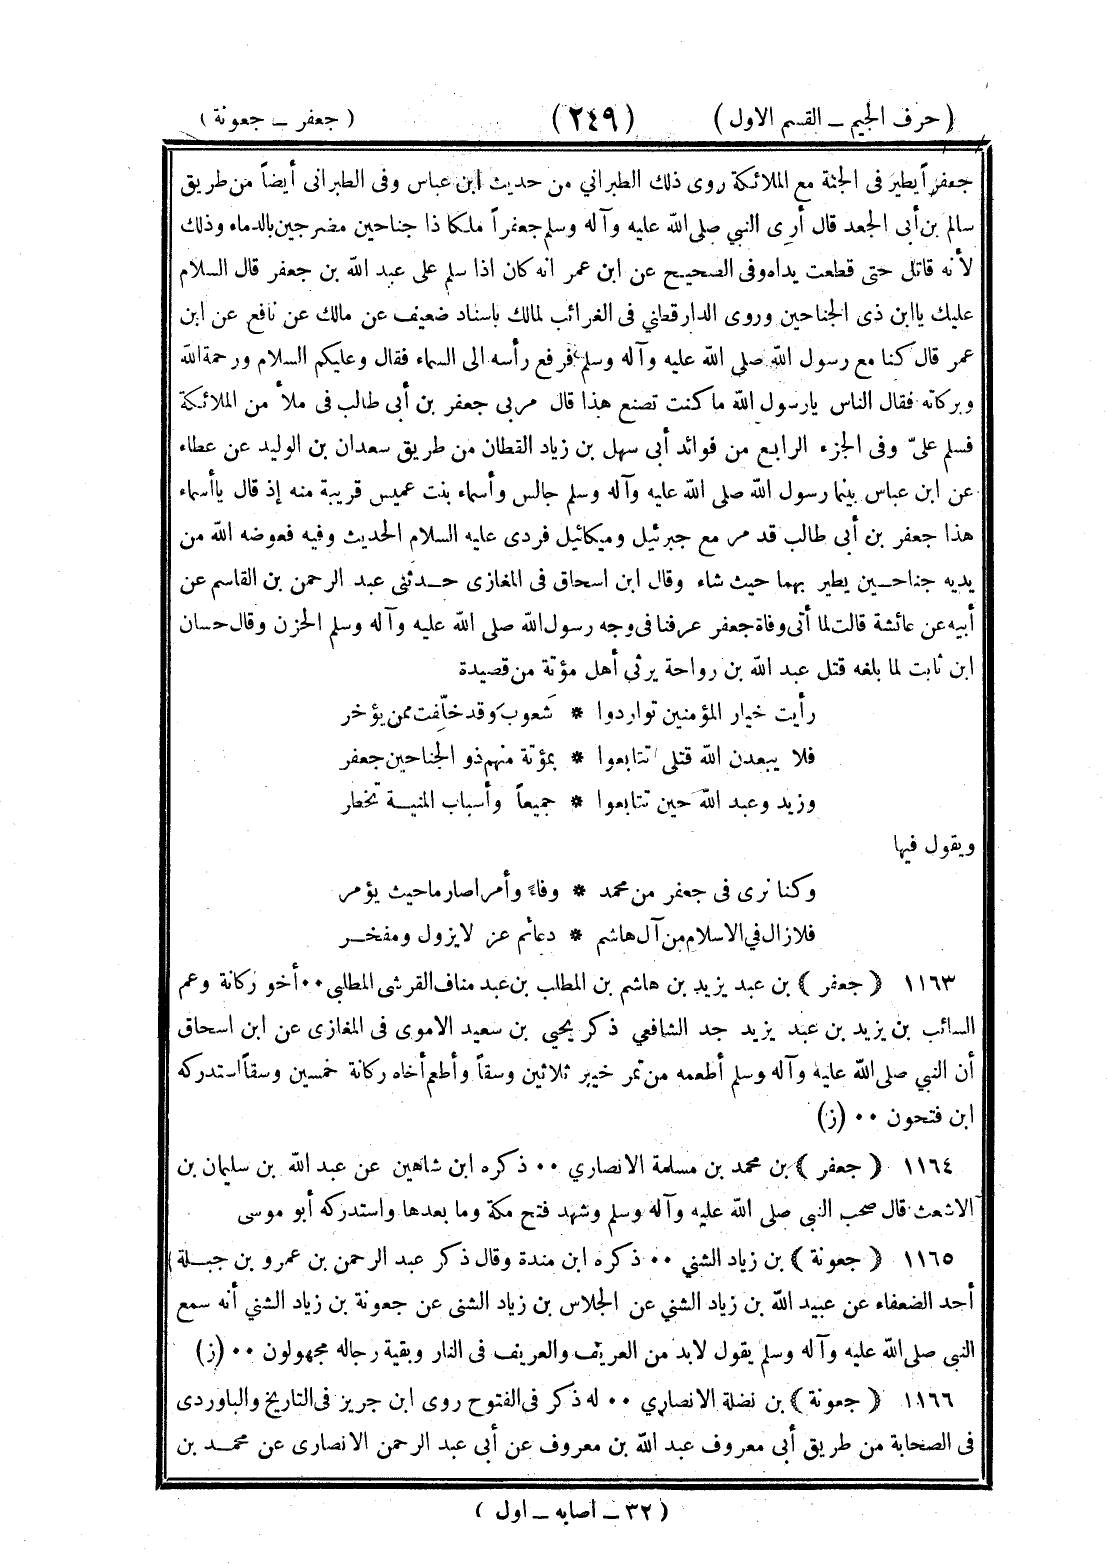 ( حرف الجيم ــ القسم الاول ) (٢٤٩) ( جعفر ــ جعونة )
جعفراً يطير فى الجنة مع الملائكة روى ذلك الطبراني من حديث ابن عباس وفى الطبرانى أيضاً من طريق
سالم بن أبى الجعد قال أرى النبي صلى الله عليه وآله وسلم جعفراً ملكا ذا جناحين مضرجين بالدماء وذلك
لأنه قاتل حتى قطعت يداه وفى الصحيح عن ابن عمر انه كان اذا سلم على عبد الله بن جعفر قال السلام
عليك ياابن ذى الجناحين وروى الدارقطني فى الغرائب لمالك باسناد ضعيف عن مالك عن نافع عن ابن
عمر قال كنا مع رسول الله صلى الله عليه وآله وسلم فرفع رأسه الى السماء فقال وعليكم السلام ورحمة الله
وبركاته فقال الناس يارسول الله ما كنت تصنع هذا قال مربى جعفر بن أبى طالب فى ملأ من الملائكة
فسلم علىّ وفى الجزء الرابع من فوائد أبى سهل بن زياد القطان من طريق سعدان بن الوليد عن عطاء
عن ابن عباس بينما رسول الله صلى الله عليه وآله وسلم جالس وأسماء بنت عميس قريبة منه إذ قال ياأسماء
هذا جعفر بن أبى طالب قد مر مع جبرئيل وميكائيل فردى عليه السلام الحديث وفيه فعوضه الله من
يديه جناحــين يطير بهما حيث شاء وقال ابن اسحاق فى المغازى حــدثنى عبد الرحمن بن القاسم عن
أبيه عن عائشة قالت لما أتى وفاة جعفر عرفنا فى وجه رسول الله صلى الله عليه وآله وسلم الحزن وقال حسان
ابن ثابت لما بلغه قتل عبد الله بن رواحة يرثي أهل مؤتة من قصيدة
رأيت خيار المؤمنين تواردوا * شَعوبَ وقد خلّفت ممن يؤخر
فلا يبعدن الله قتلى تتابعوا * بمؤتة منهم ذو الجناحين جعفر
وزيد وعبد الله حين تتابعوا * جميعاً وأسباب المنيــة تخطر
ويقول فيها
وكنا نرى فى جعفر من محمد * وفاءً وأمرا صارما حيث يؤمر
فلا زال في الاسلام من آل هاشم * دعائم عز لا يزول ومفخــر
١١٦٣ ( جعفر ) بن عبد يزيد بن هاشم بن المطلب بن عبد مناف القرشى المطلبى ٠٠ أخو ركانة وعم
السائب بن يزيد بن عبد يزيد جد الشافعي ذكر يحيى بن سعيد الاموى فى المغازى عن ابن اسحاق
أن النبي صلى الله عليه وآله وسلم أطعمه من تمر خيبر ثلاثين وسقاً وأطعم أخاه ركانة خمسين وسقاً استدركه
ابن فتحون ٠٠ (ز)
١١٦٤ ( جعفر ) بن محمد بن مسلمة الانصاري ٠٠ ذكره ابن شاهين عن عبد الله بن سليمان بن
الاشعث قال صحب النبي صلى الله عليه وآله وسلم وشهد فتح مكة وما بعدها واستدركه أبو موسى
١١٦٥ ( جعونة ) بن زياد الشني ٠٠ ذكره ابن مندة وقال ذكر عبد الرحمن بن عمرو بن جبــلة
أحد الضعفاء عن عبيد الله بن زياد الشني عن الجلاس بن زياد الشنى عن جعونة بن زياد الشني أنه سمع
النبى صلى الله عليه وآله وسلم يقول لابد من العريف والعريف فى النار وبقية رجاله مجهولون ٠٠ (ز)
١١٦٦ ( جعونة ) بن نضلة الانصاري ٠٠ له ذكر فى الفتوح روى ابن جريز فى التاريخ والباوردى
فى الصحابة من طريق أبى معروف عبد الله بن معروف عن أبى عبد الرحمن الانصارى عن محمــد بن
( ٣٢ ــ اصابه ــ اول )